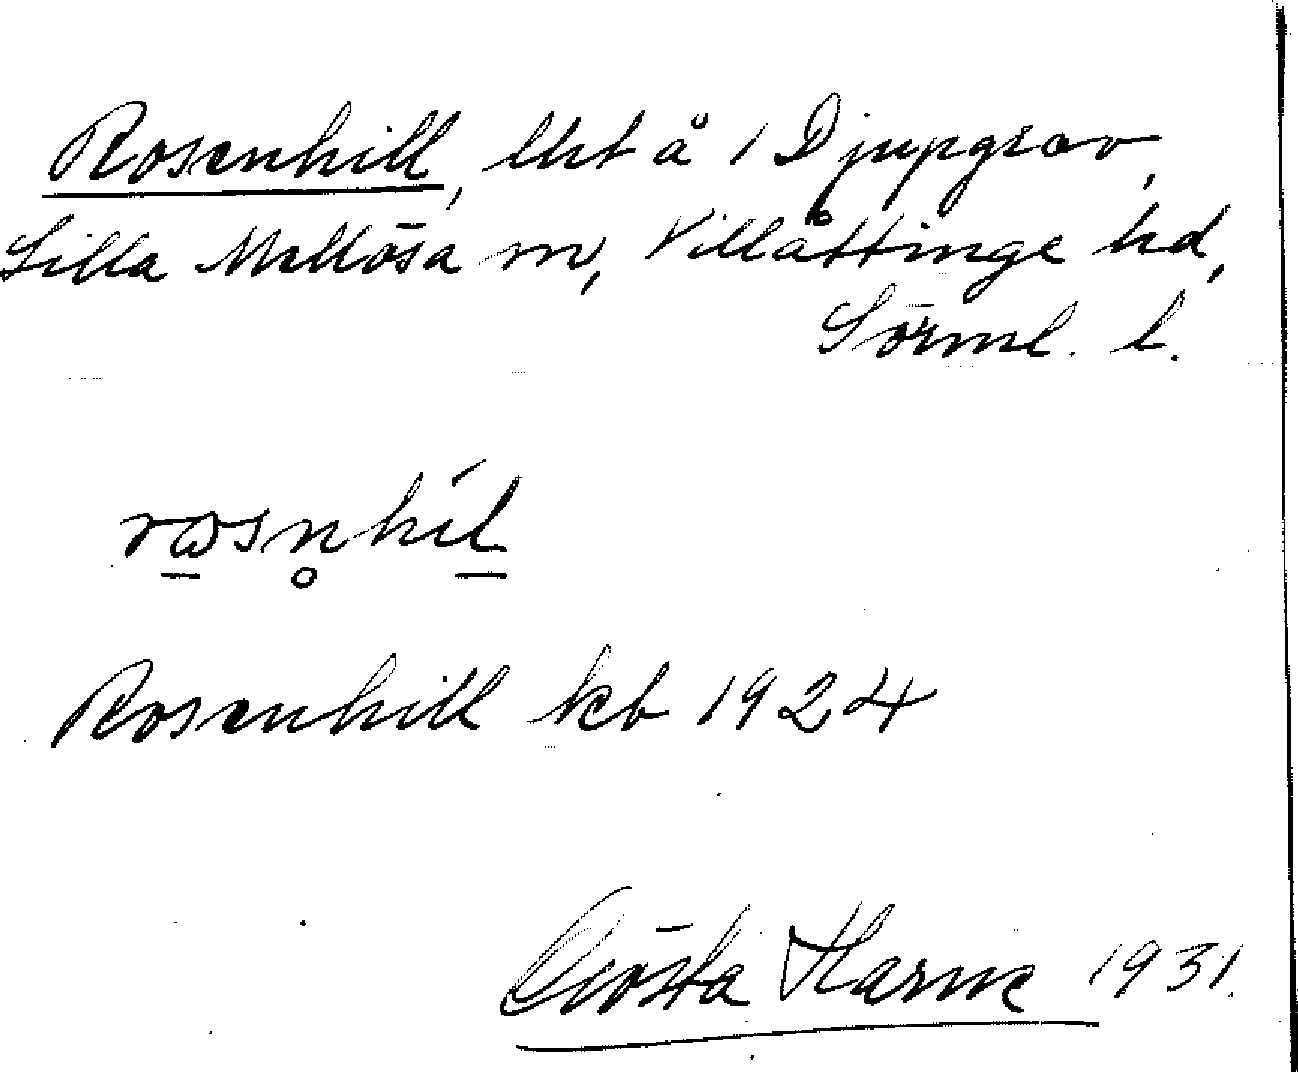 Rosenhill, lht å 1 Djupgrav,
Lilla Mellösa sn, Villåttinge hd,
Sörml. l.
rɷsn̥híl
Rosenhill kb 1924
Gösta Harne 1931.